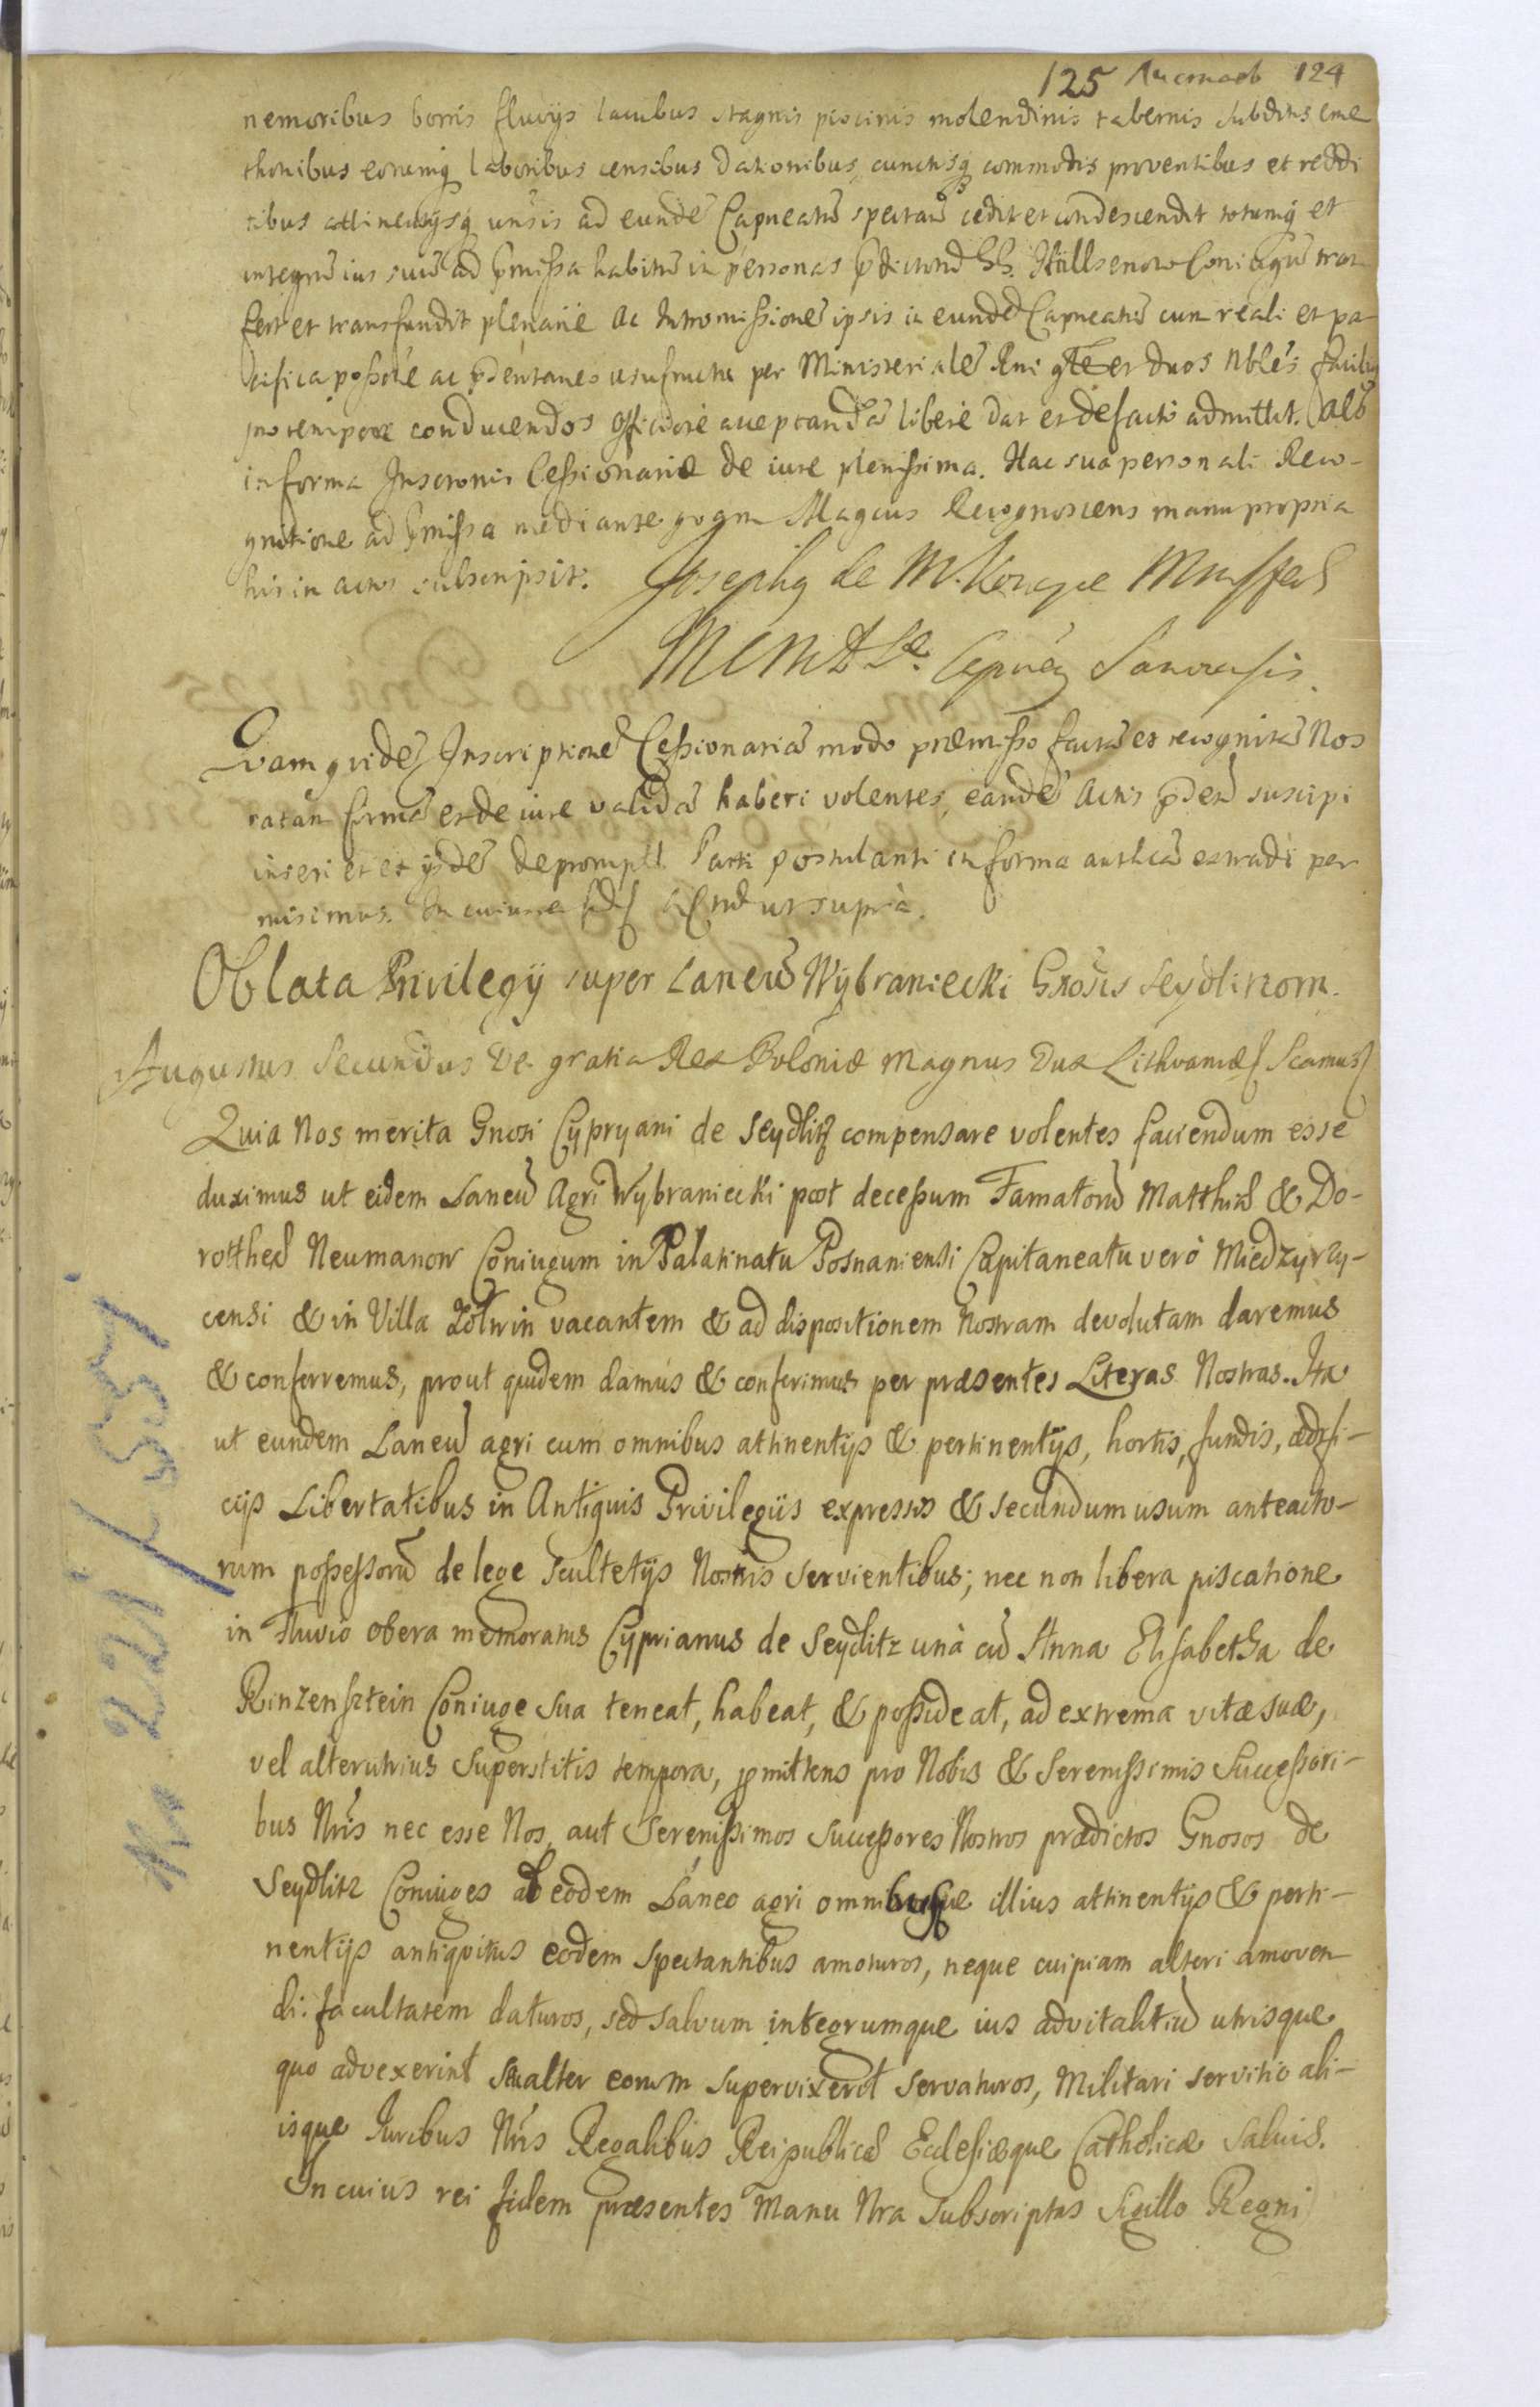 125 Листовъ 124
nemoribus borris fluvijs lacubus stagnis piscinis molendinis tabernis subditis cme
thonibus eorumq laboribus censibus dationibus cunctisq commodis proventibus et reddi
tibus attinentijsq unsis ad eunde Capneatu spectan cedit et condescendit totumq et
integru ius suu ad pmissa habitu in personas pdictoru Hullsenow Coniugu trans
fert et transfundit plenarie ac Intromissione ipsis in eunde Capneatu cum reali et pa
cifica possole ac usufructu per Ministeriale Rni gnle et duos Nbles
pro tempore conducendos accaptanda libere dat et defacto admittit.
in forma Inscronis Cessionariæ de iure plenissima. Hac sua personali Reco-
gnitione ad pmissa mediante Magcus Recognoscens manu propria
his in actis subscripsit.
Capnẽg
Quam quide Inscriptione Cessionaria modo præmisso facta et recognita Nos
ratam firma et de iure valida haberi volentes, eande Actis suscipi
inseri et ex ijsde depromptt Parti postulanti in forma authca extradi per
misimus. In cuius ut supra.
Oblata Privilegÿ super Laneu Wÿbraniecki Grosis Seydlitzom.
Augustus Secundus Dei gratia Rex Poloniæ Magnus Dux Lithvaniæ
Quia Nos merita Gnosi Cypryani de Seydlitz compensare volentes faciendum esse
duximus ut eidem Laneu Agri Wybraniecki post decessum Famatoru Matthiæ & Do-
rotheæ Neumanow Coniugum in Palatinatu Posnaniensi Capitaneatu verò Miedzyrzy-
censi & in Villa Zolwin vacantem & ad dispositionem Nostram devolutam daremus
& conferremus, prout quidem damus & conferimus per præsentes Literas Nostras. Ita
ut eundem Laneu agri cum omnibus attinentijs & pertinentijs, hortis, fundis, ædifi-
cijs Libertatibus in Antiquis Privilegiis expressis & secundum usum anteacto-
rum possessoru de lege Scultetijs Nostris servientibus; nec non libera piscatione
in Fluvio Obera memoratus Cyprianus de Seydlitz unà cu Anna Elisabetha de
Rinzensztein Coniuge sua teneat, habeat, & possideat, ad extrema vitæ suæ,
vel alterutrius Superstitis tempora, pmittens pro Nobis & Serenissimis Successori-
bus Nris nec esse Nos, aut Serenissimos Successores Nostros prædictos Gnosos de
Seydlitz Coniuges ab eodem Laneo agri omnibusque illius attinentijs & perti-
nentijs antiquitus eodem spectantibus amoturos, neque cuipiam alteri amoven-
di facultatem daturos, sed salvum integrumque ius advitalitiu utrisque
quo advexerint seu alter eorum supervixerit servaturos, Militari servitio ali-
isque Iuribus Nris Regalibus Reipublicæ Ecclesiæque Catholicæ Salvis.
In cuius rei fidem præsentes Manu Nra Subscriptas Sigillo Regni